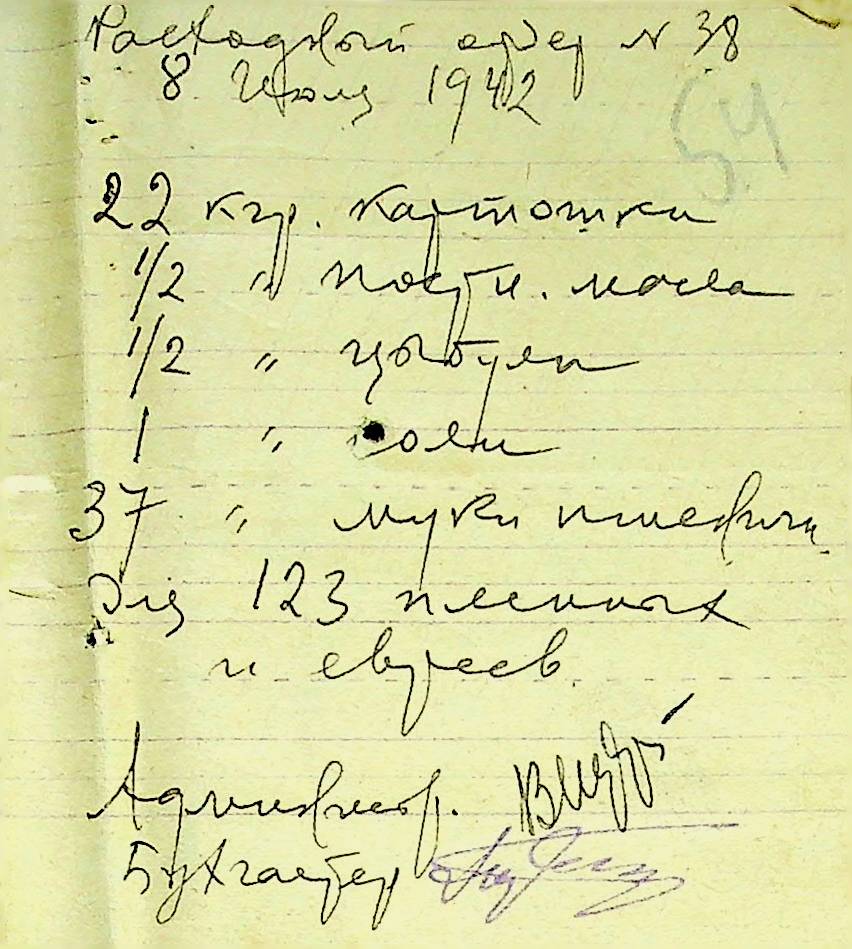 Расходный ордер N 38
8 Июля 1942
54
22 кгр. картошки
1/2 " постн. масла
1/2 " цыбули
1 " соли
37 " муки пшеничн.
для 123 пленных
и евреев.
Администр.
Бухгалтер